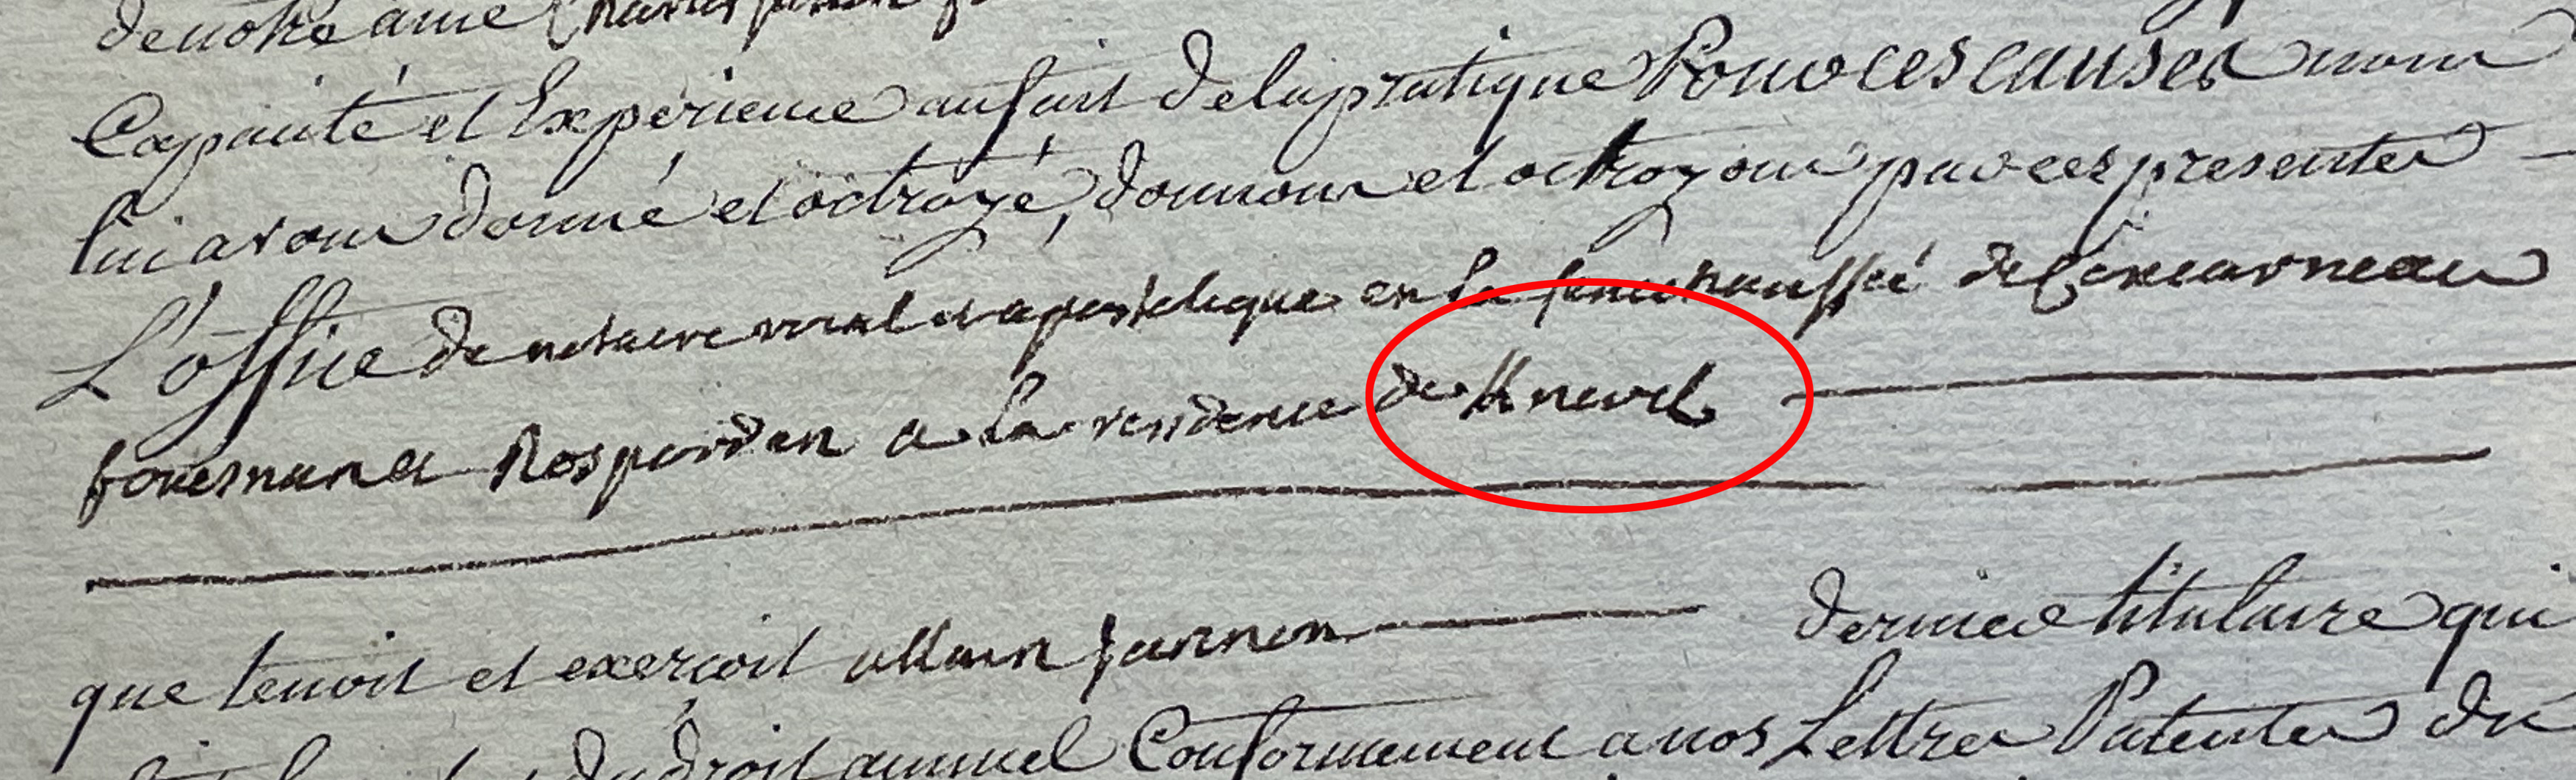 de notre amé Charles
Capacité et Experience au fait de la pratique Pour ces causes nous
lui avons donné et octroyé, donnons et octroyons par ces presentes
L'office de notaire roial et apostolique en la senechaussée de Concarneau
fouesnant et Rosporden a la residence de Knevel
que tenoit et exerçoit allain jannou dernier titulaire qui
du droit annuel Conformement a nos Lettres Patentes du